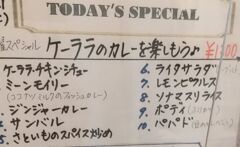 TODAY'S SPECIAL
スペシャル ケーララのカレーを楽しもう♪ ¥1500
ケーララ・チキンシチュー
ミーンモイリー
(ココナツミルクのフィッシュカレー)
ジンジャーカレー
4. サンバル
5. さといものスパイス炒め
6. ライタサラダ
7. レモンピクルス
8. ソナマスリライス
9.
10. パパド